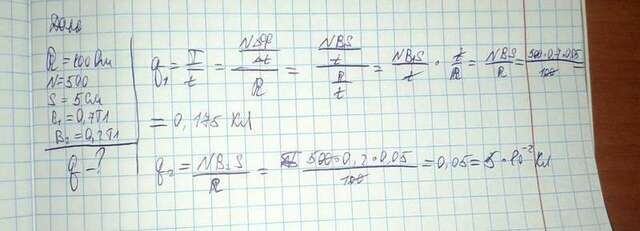 Дано
R = 100 Ом
N = 500
S = 5 см
B₁ = 0,7 Тл
B₂ = 0,2 Тл
q - ?
q₁ = I/t = (NΔφ/Δt)/R = (NBS/t)/(R/t) = NBS/t · t/R = NBS/R = 500·0,7·0,05/100 =
= 0,175 Кл
q₂ = NB₂S/R = 500·0,2·0,05/100 = 0,05 = 5·10⁻² Кл